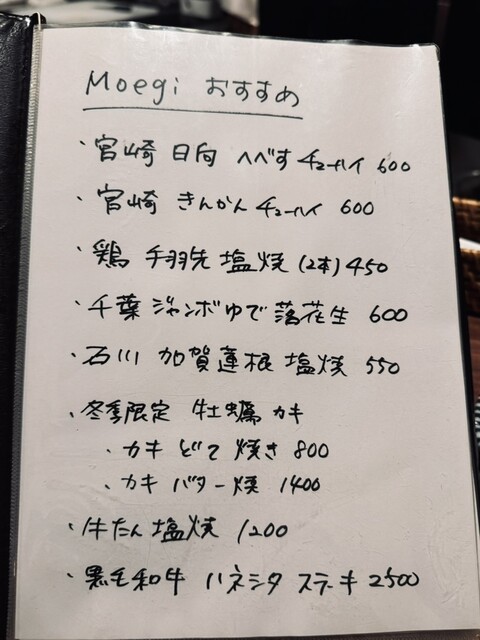 Moegi おすすめ
・宮崎 日向 へべす チューハイ 600
・宮崎 きんかん チューハイ 600
・鶏 手羽先 塩焼 (2本) 450
・千葉 ジャンボゆで 落花生 600
・石川 加賀蓮根 塩焼 550
・冬季限定 牡蠣 カキ
・カキ どて 焼き 800
・カキ バター焼 1400
・牛たん 塩焼 1200
・黒毛和牛 ハネシタ ステーキ 2500